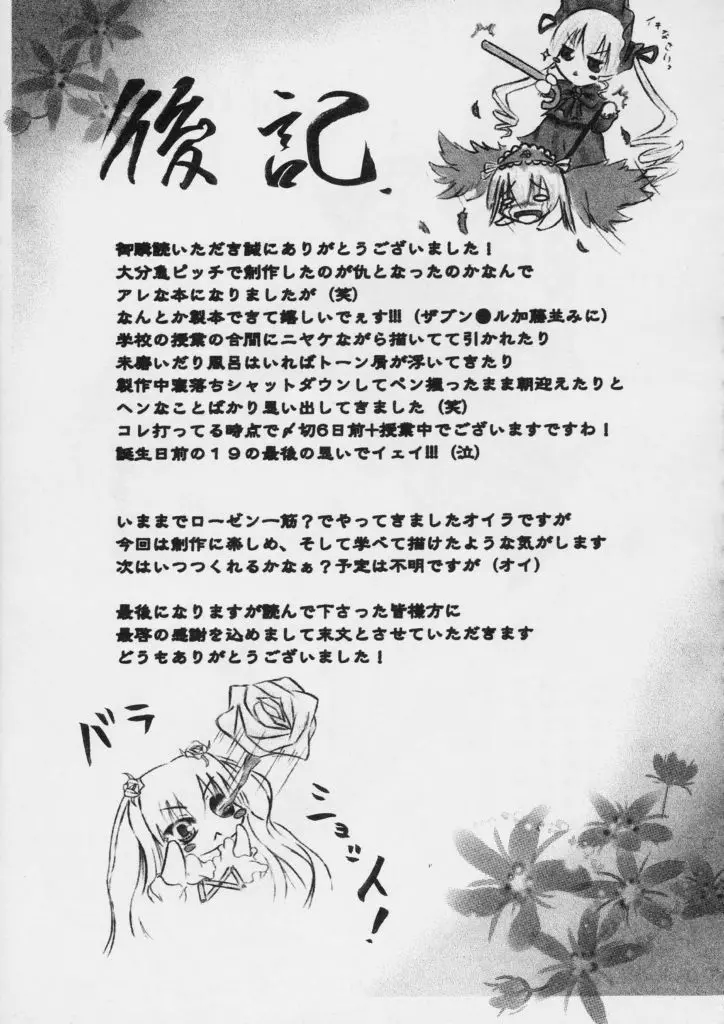 後記
御購読いただき誠にありがとうございました！
大分急ピッチで創作したのが仇となったのかなんで
アレな本になりましたが（笑）
なんとか製本できて嬉しいでぇす!!!（ザブン●ル加藤並みに）
学校の授業の合間にニヤケながら描いてて引かれたり
歯磨いだり風呂はいればトーン屑が浮いてきたり
製作中寝落ちシャットダウンしてペン握ったまま朝迎えたりと
ヘンなことばかり思い出してきました（笑）
コレ打ってる時点で〆切6日前+授業中でございますですわ！
誕生日前の１９の最後の思いでイェイ!!!（泣）
いままでローゼン一筋？でやってきましたオイラですが
今回は創作に楽しめ、そして学べて描けたような気がします
次はいつつくれるかなぁ？予定は不明ですが（オイ）
最後になりますが読んで下さった皆様方に
最啓の感謝を込めまして末文とさせていただきます
どうもありがとうございました！
バラ
ショジ人！